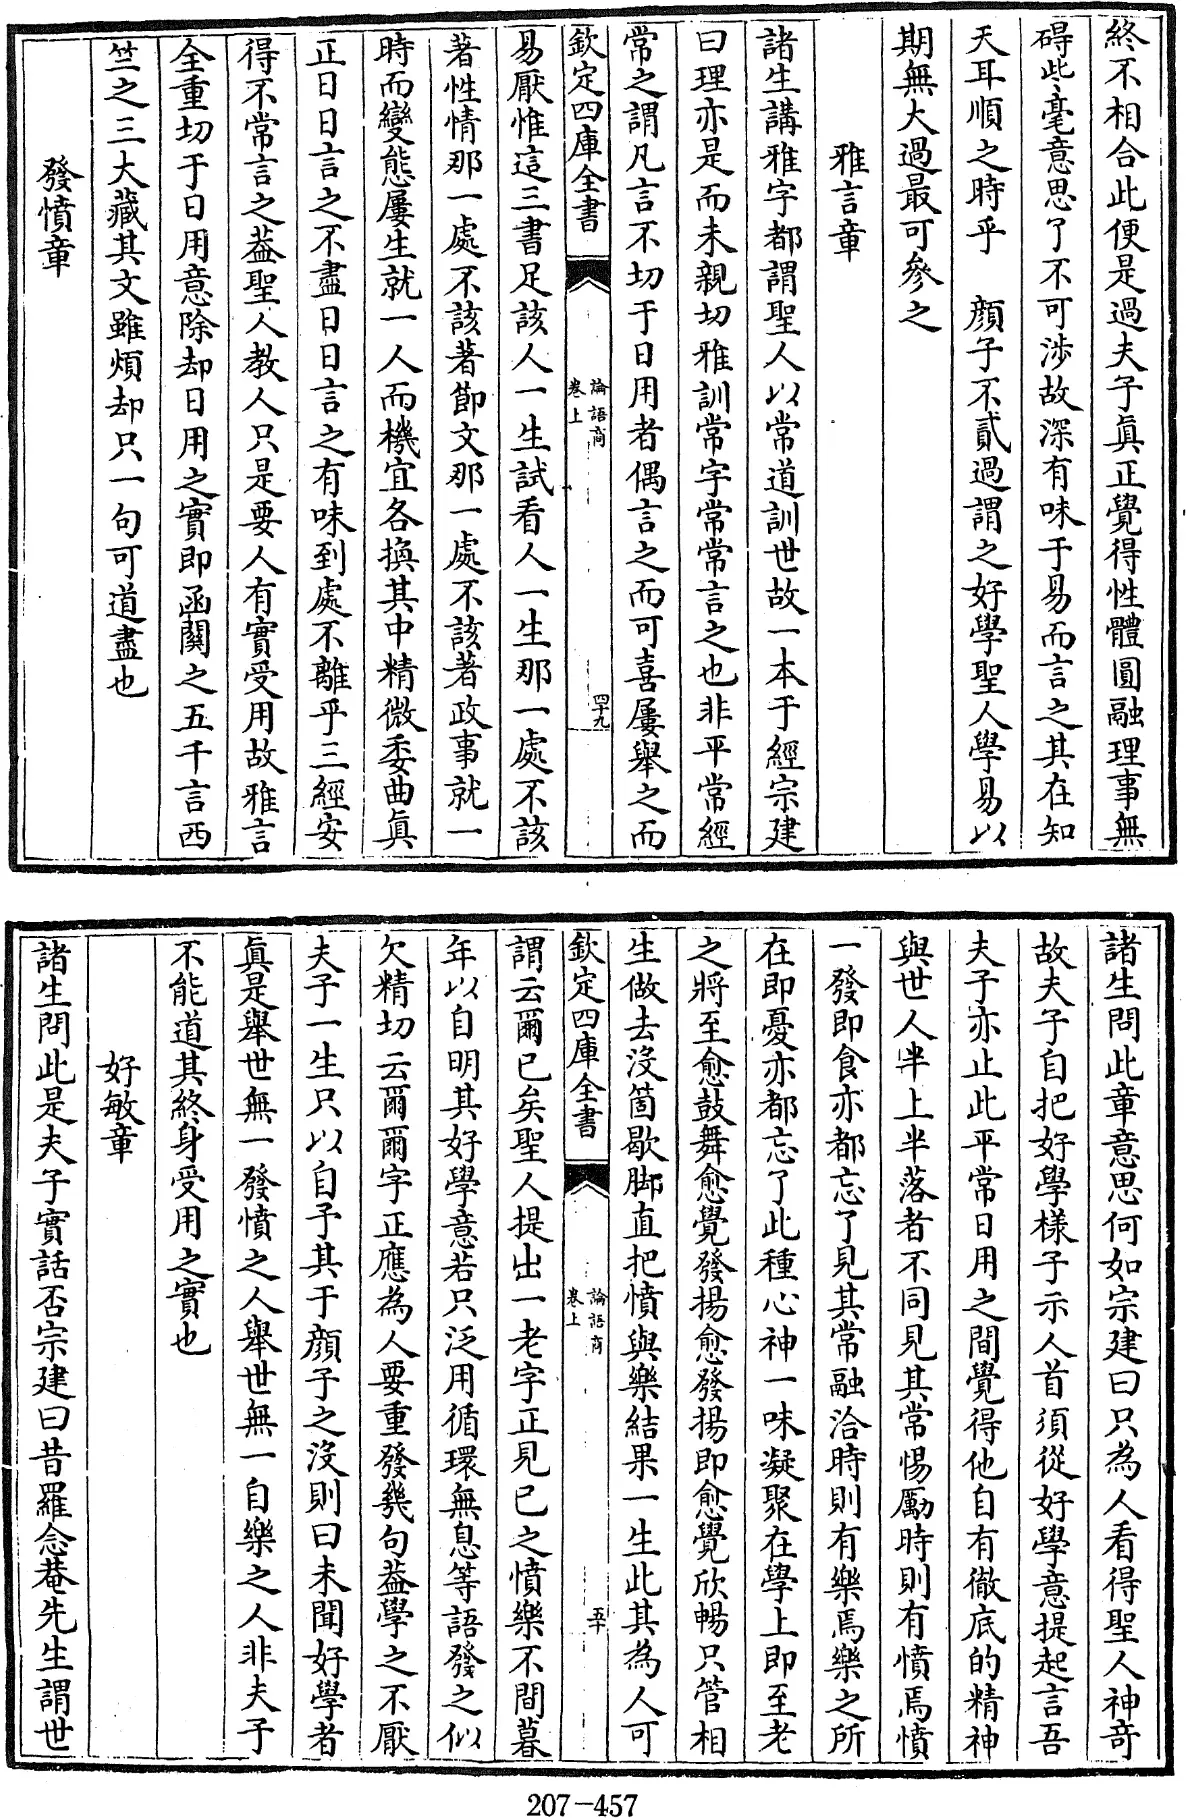 終不相合此便是過夫子真正覺得性體圓融理事無
碍些毫意思了不可涉故深有味于易而言之其在知
天耳順之時乎　顔子不貳過謂之好學聖人學易以
期無大過最可參之
雅言章
諸生講雅字都謂聖人以常道訓世故一本于經宗建
曰理亦是而未親切雅訓常字常常言之也非平常經
常之謂凡言不切于日用者偶言之而可喜屢舉之而
欽定四庫全書
論語商
卷上
四十九
易厭惟這三書足該人一生試看人一生那一處不該
著性情那一處不該著節文那一處不該著政事就一
時而變態屢生就一人而機宜各換其中精微委曲真
正日日言之不盡日日言之有味到處不離乎三經安
得不常言之葢聖人教人只是要人有實受用故雅言
全重切于日用意除却日用之實即函關之五千言西
竺之三大藏其文雖煩却只一句可道盡也
發憤章
諸生問此章意思何如宗建曰只為人看得聖人神奇
故夫子自把好學樣子示人首須從好學意提起言吾
夫子亦止此平常日用之間覺得他自有徹底的精神
與世人半上半落者不同見其常惕勵時則有憤焉憤
一發即食亦都忘了見其常融洽時則有樂焉樂之所
在即憂亦都忘了此種心神一味凝聚在學上即至老
之將至愈鼓舞愈覺發揚愈發揚即愈覺欣暢只管相
生做去沒箇歇脚直把憤與樂結果一生此其為人可
欽定四庫全書
論語商
卷上
五十
謂云爾已矣聖人提出一老字正見已之憤樂不間暮
年以自明其好學意若只泛用循環無息等語發之似
欠精切云爾爾字正應為人要重發幾句葢學之不厭
夫子一生只以自予其于顔子之沒則曰未聞好學者
真是舉世無一發憤之人舉世無一自樂之人非夫子
不能道其終身受用之實也
好敏章
諸生問此是夫子實話否宗建曰昔羅念菴先生謂世
207-457